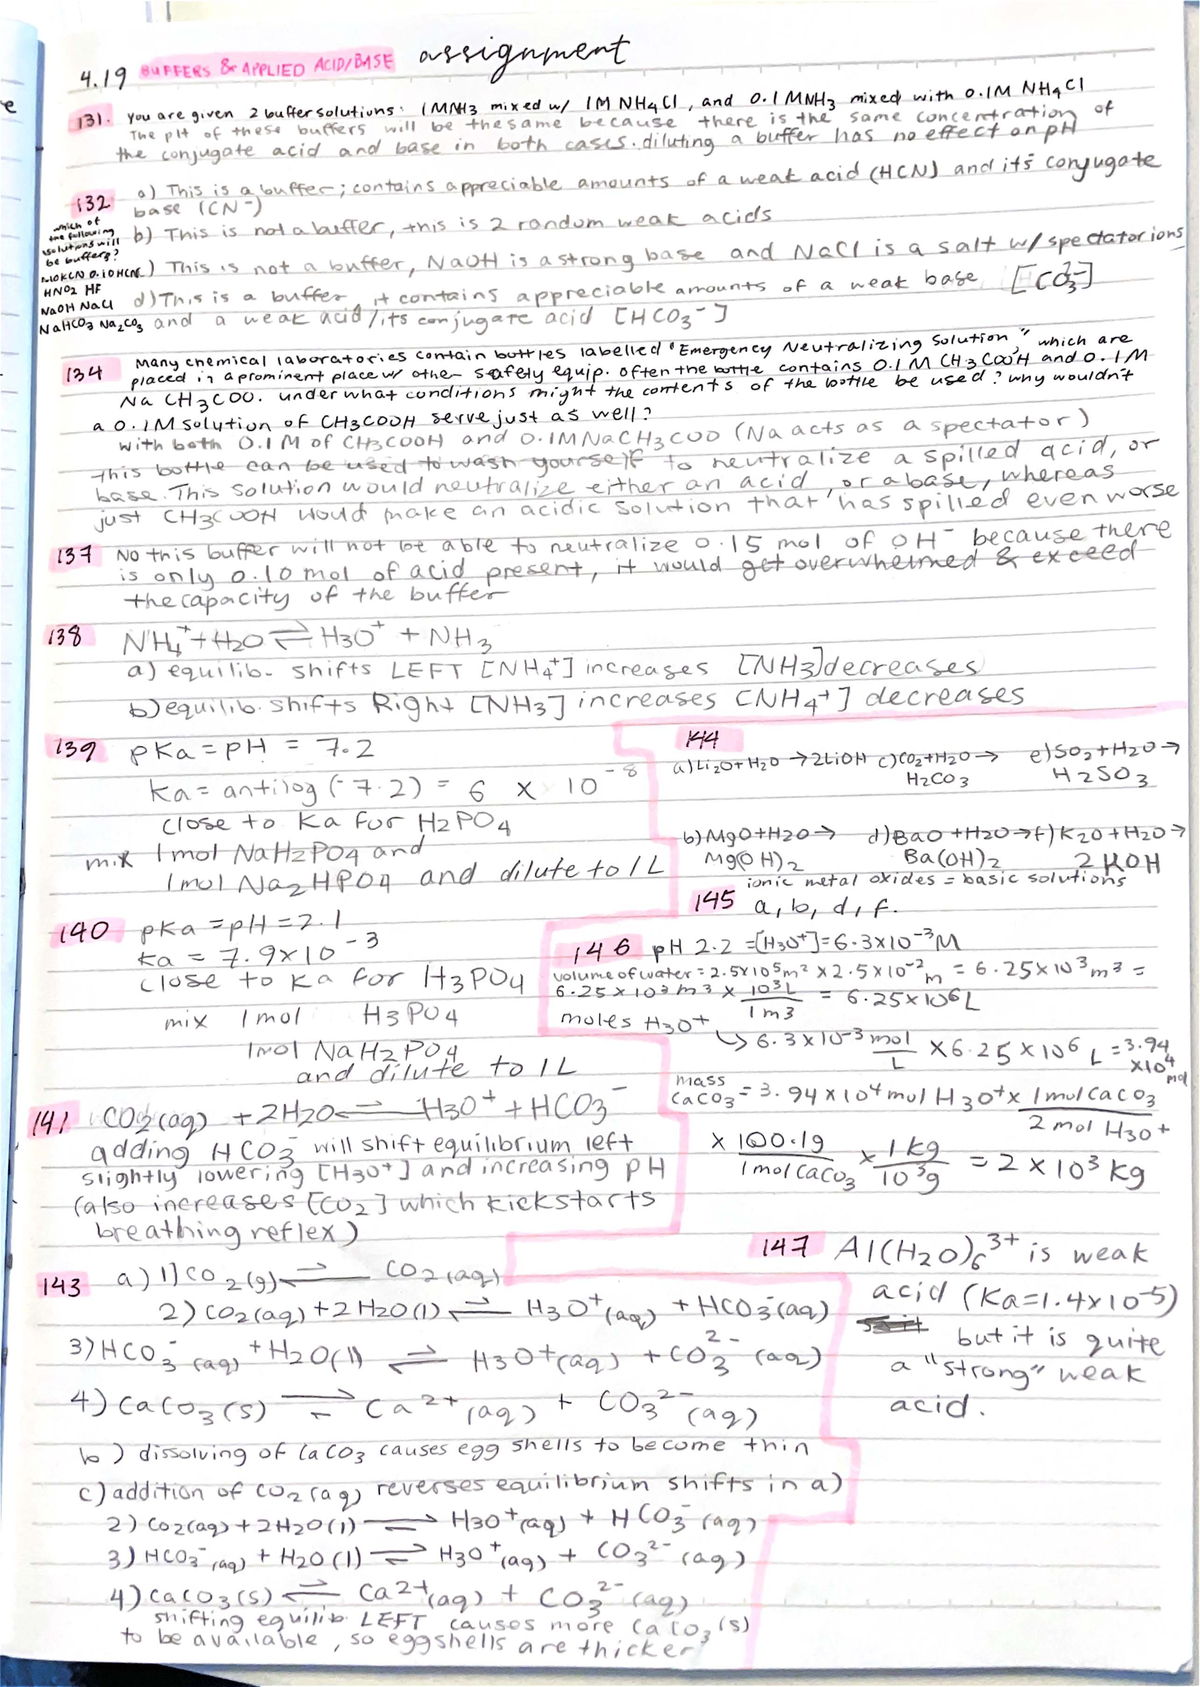 4.19 BUFFERS & APPLIED ACID/BASE assignment
131. You are given 2 buffer solutions: 1M NH3 mixed w/ 1M NH4Cl, and 0.1 M NH3 mixed with 0.1M NH4Cl
The pH of these buffers will be the same because there is the same concentration of
the conjugate acid and base in both cases. diluting a buffer has no effect on pH
132 a) This is a buffer; contains appreciable amounts of a weak acid (HCN) and it's conjugate
base (CN-)
which of
the following
solutions will
be buffers?
HNO2 HF
NaOH NaCl
NaHCO3 Na2CO3
b) This is not a buffer, this is 2 random weak acids
c) This is not a buffer, NaOH is a strong base and NaCl is a salt w/ spectator ions
d) This is a buffer, it contains appreciable amounts of a weak base [CO3 2-]
and a weak acid/its conjugate acid [HCO3-]
134 Many chemical laboratories contain bottles labelled "Emergency Neutralizing Solution," which are
placed in a prominent place w/ other safety equip. often the bottle contains 0.1M CH3COOH and 0.1M
Na CH3COO. under what conditions might the contents of the bottle be used? why wouldn't
a 0.1M solution of CH3COOH serve just as well?
with both 0.1M of CH3COOH and 0.1M NaCH3COO (Na acts as a spectator)
this bottle can be used to wash yourself to neutralize a spilled acid, or
base. This solution would neutralize either an acid, or a base, whereas
just CH3COOH would make an acidic solution that has spilled even worse
137 No this buffer will not be able to neutralize 0.15 mol of OH- because there
is only 0.10 mol of acid present, it would get overwhelmed & exceed
the capacity of the buffer
138 NH4+ + H2O ⇌ H3O+ + NH3
a) equilib. shifts LEFT [NH4+] increases [NH3] decreases
b) equilib. shifts Right [NH3] increases [NH4+] decreases
139 pKa = pH = 7.2
Ka = antilog (-7.2) = 6 x 10-8
close to Ka for H2PO4
mix 1mol NaH2PO4 and
1mol Na2HPO4 and dilute to 1L
140 pKa = pH = 2.1
Ka = 7.9x10-3
close to Ka for H3PO4
mix 1mol H3PO4
1mol NaH2PO4
and dilute to 1L
141 CO2(aq) + 2H2O ⇌ H3O+ + HCO3-
adding HCO3- will shift equilibrium left
slightly lowering [H3O+] and increasing pH
(also increases [CO2] which kickstarts
breathing reflex)
143 a) 1) CO2(g) ⇌ CO2(aq)
2) CO2(aq) + 2H2O(l) ⇌ H3O+(aq) + HCO3-(aq)
3) HCO3-(aq) + H2O(l) ⇌ H3O+(aq) + CO3 2-(aq)
4) CaCO3(s) ⇌ Ca2+(aq) + CO3 2-(aq)
b) dissolving of CaCO3 causes egg shells to become thin
c) addition of CO2(aq) reverses equilibrium shifts in a)
2) CO2(aq) + 2H2O(l) ⇌ H3O+(aq) + HCO3-(aq)
3) HCO3-(aq) + H2O(l) ⇌ H3O+(aq) + CO3 2-(aq)
4) CaCO3(s) ⇌ Ca2+(aq) + CO3 2-(aq)
shifting equilib. LEFT causes more CaCO3(s)
to be available, so eggshells are thicker
144
a) Li2O + H2O → 2LiOH c) CO2 + H2O → e) SO2 + H2O →
H2CO3 H2SO3
b) MgO + H2O → d) BaO + H2O → f) K2O + H2O →
Mg(OH)2 Ba(OH)2 2KOH
ionic metal oxides = basic solutions
145 a, b, d, f.
146 pH 2.2 = [H3O+] = 6.3x10-3M
volume of water = 2.5x10 5 m2 x 2.5x10-2 m = 6.25x10 3 m3 =
6.25x10 3 m3 x 10 3 L / 1m3 = 6.25x10 6 L
moles H3O+
↳ 6.3x10-3 mol/L x 6.25x10 6 L = 3.94 x10 4 mol
mass CaCO3 = 3.94x10 4 mol H3O+ x 1mol CaCO3 / 2 mol H3O+
x 100.1g / 1mol CaCO3 x 1kg / 10 3 g = 2x10 3 kg
147 Al(H2O)6 3+ is weak
acid (Ka=1.4x10-5)
but it is quite
a "strong" weak
acid.